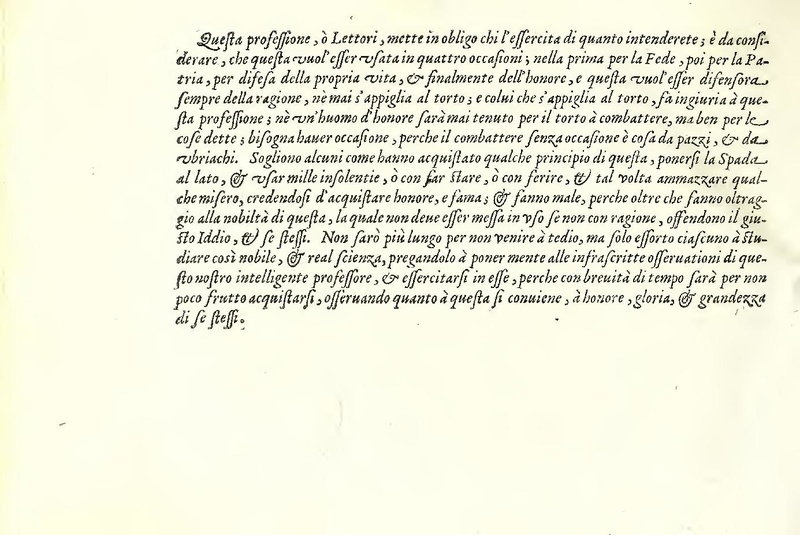 Queſta profeſſione, ò Lettori, mette in obligo chi l'eſſercita di quanto intenderete; è da conſi-
derare, che queſta vuol' eſſer vſata in quattro occaſioni; nella prima per la Fede, poi per la Pa-
tria, per difeſa della propria vita, & finalmente dell'honore, e queſta vuol' eſſer difenſora
ſempre della ragione, nè mai s'appiglia al torto; e colui che s'appiglia al torto, fa ingiuria à que-
ſta profeſſione; nè vn'huomo d'honore ſarà mai tenuto per il torto à combattere, ma ben per le
coſe dette; biſogna hauer occaſione, perche il combattere ſenza occaſione è coſa da pazzi, & da
vbriachi. Sogliono alcuni come hanno acquiſtato qualche principio di queſta, ponerſi la Spada
al lato, & vſar mille inſolentie, ò con far ſtare, ò con ferire, & tal volta ammazzare qual-
che miſero, credendoſi d'acquiſtare honore, e fama; & fanno male, perche oltre che fanno oltrag-
gio alla nobiltà di queſta, la quale non deue eſſer meſſa in vſo ſe non con ragione, offendono il giu-
ſto Iddio, & ſe ſteſſi. Non farò più lungo per non venire à tedio, ma ſolo eſſorto ciaſcuno à ſtu-
diare così nobile, & real ſcienza, pregandolo à poner mente alle infraſcritte oſſeruationi di que-
ſto noſtro intelligente profeſſore, & eſſercitarſi in eſſe, perche con breuità di tempo farà per non
poco frutto acquiſtarſi, oſſeruando quanto à queſta ſi conuiene, à honore, gloria, & grandezza
di ſe ſteſſi.